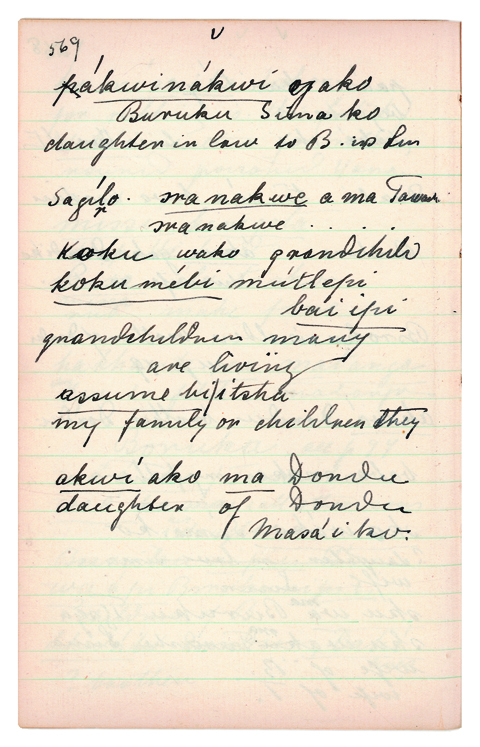 569
pákwinákwi yako
Buruku Simako
daughter in law to B. is Sim
Sagílo. sranakwe a ma
sranakwe . . .
Koku wako grandchild
koku mébi mútlepi
bai ipi
grandchildren many
are living
assume bijitsha
my family or children they
akwí ako ma Dondu
daughter of Dondu
Masá i kw.